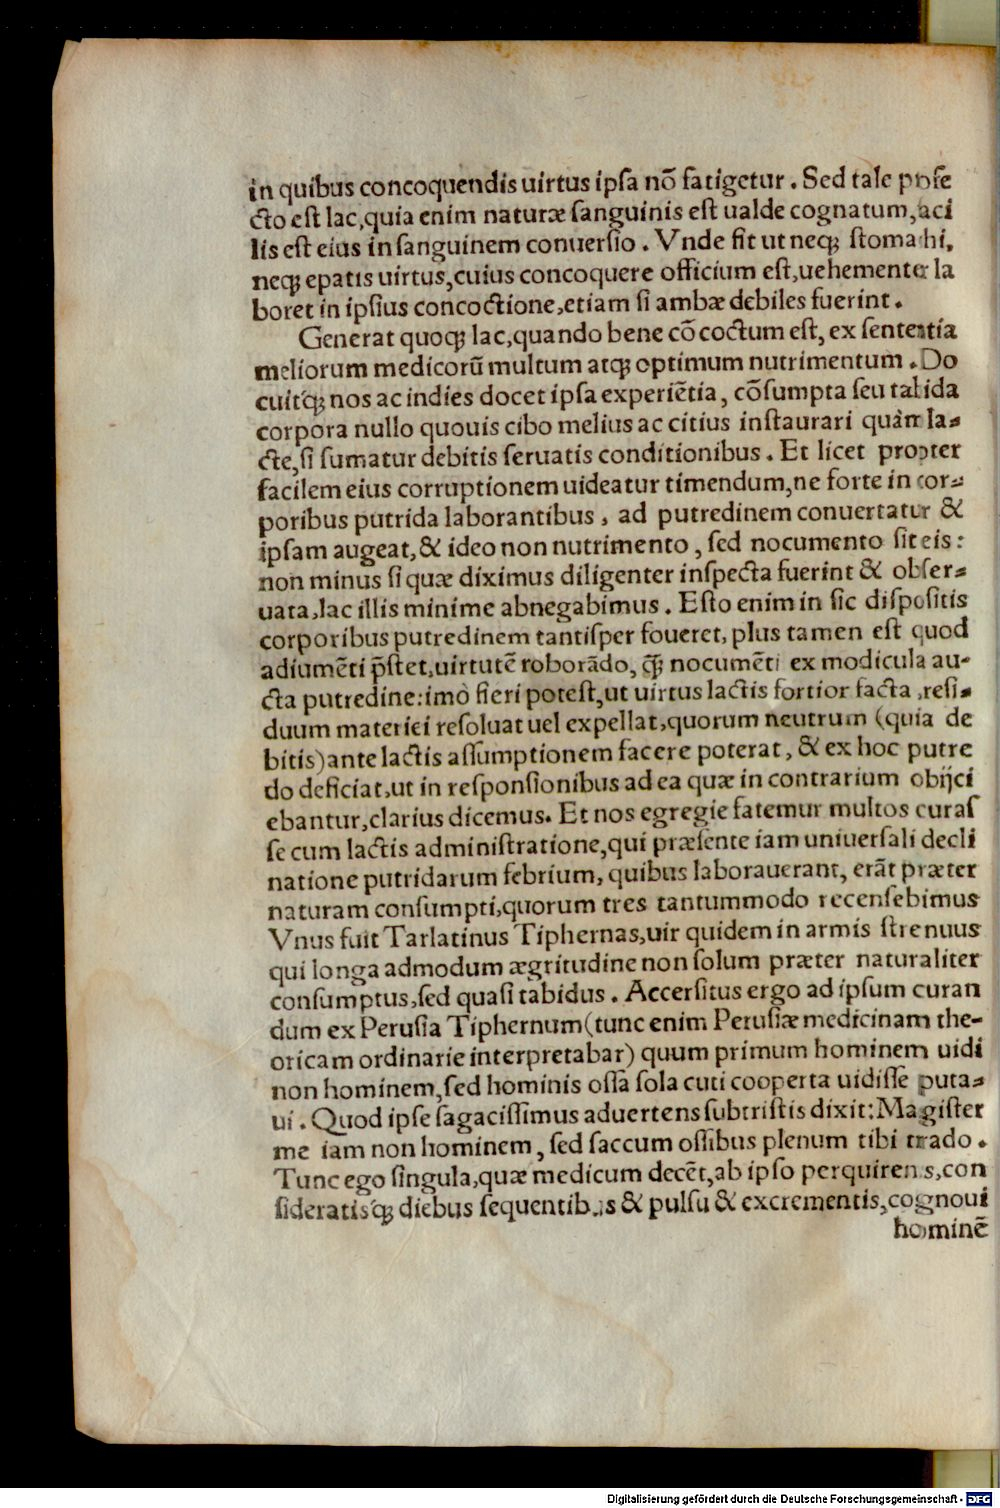 in quibus concoquendis uirtus ipſa nõ fatigetur. Sed tale profe
cto eſt lac, quia enim naturæ ſanguinis eſt ualde cognatum, faci
lis eſt eius in ſanguinem conuerſio. Vnde fit ut neqꝫ ſtomachi,
neqꝫ epatis uirtus, cuius concoquere officium eſt, uehementer la
boret in ipſius concoctione, etiam ſi ambæ debiles fuerint.
Generat quoqꝫ lac, quando bene cõcoctum eſt, ex ſententia
meliorum medicorũ multum atqꝫ optimum nutrimentum. Do
cuitqꝫ nos ac indies docet ipſa experiẽtia, cõſumpta ſeu tabida
corpora nullo quouis cibo melius ac citius inſtaurari quàm la-
cte, ſi ſumatur debitis ſeruatis conditionibus. Et licet propter
facilem eius corruptionem uideatur timendum, ne forte in cor-
poribus putrida laborantibus, ad putredinem conuertatur &
ipſam augeat, & ideo non nutrimento, ſed nocumento ſit eis:
non minus ſi quæ diximus diligenter inſpecta fuerint & obſer-
uata, lac illis minime abnegabimus. Eſto enim in ſic diſpoſitis
corporibus putredinem tantiſper foueret, plus tamen eſt quod
adiumẽti p̃ſtet, uirtutẽ roborãdo, q̃ꝫ nocumẽti ex modicula au-
cta putredine: imò fieri poteſt, ut uirtus lactis fortior facta, reſi-
duum materiei reſoluat uel expellat, quorum neutrum (quia de
bitis) ante lactis aſſumptionem facere poterat, & ex hoc putre
do deficiat, ut in reſponſionibus ad ea quæ in contrarium obijci
ebantur, clarius dicemus. Et nos egregie fatemur multos curaſ
ſe cum lactis adminiſtratione, qui præſente iam uniuerſali decli
natione putridarum febrium, quibus laborauerant, erãt præter
naturam conſumpti, quorum tres tantummodo recenſebimus
Vnus fuit Tarlatinus Tiphernas, uir quidem in armis ſtrenuus
qui longa admodum ægritudine non ſolum præter naturaliter
conſumptus, ſed quaſi tabidus. Accerſitus ergo ad ipſum curan
dum ex Peruſia Tiphernum (tunc enim Peruſiæ medicinam the-
oricam ordinarie interpretabar) quum primum hominem uidi
non hominem, ſed hominis oſſa ſola cuti cooperta uidiſſe puta-
ui. Quod ipſe ſagaciſſimus aduertens ſubtriſtis dixit: Magiſter
me iam non hominem, ſed ſaccum oſſibus plenum tibi trado.
Tunc ego ſingula, quæ medicum decẽt, ab ipſo perquirens, con
ſideratisqꝫ diebus ſequentibus & pulſu & excrementis, cognoui
hominẽ
Digitalisierung gefördert durch die Deutsche Forschungsgemeinschaft - DFG